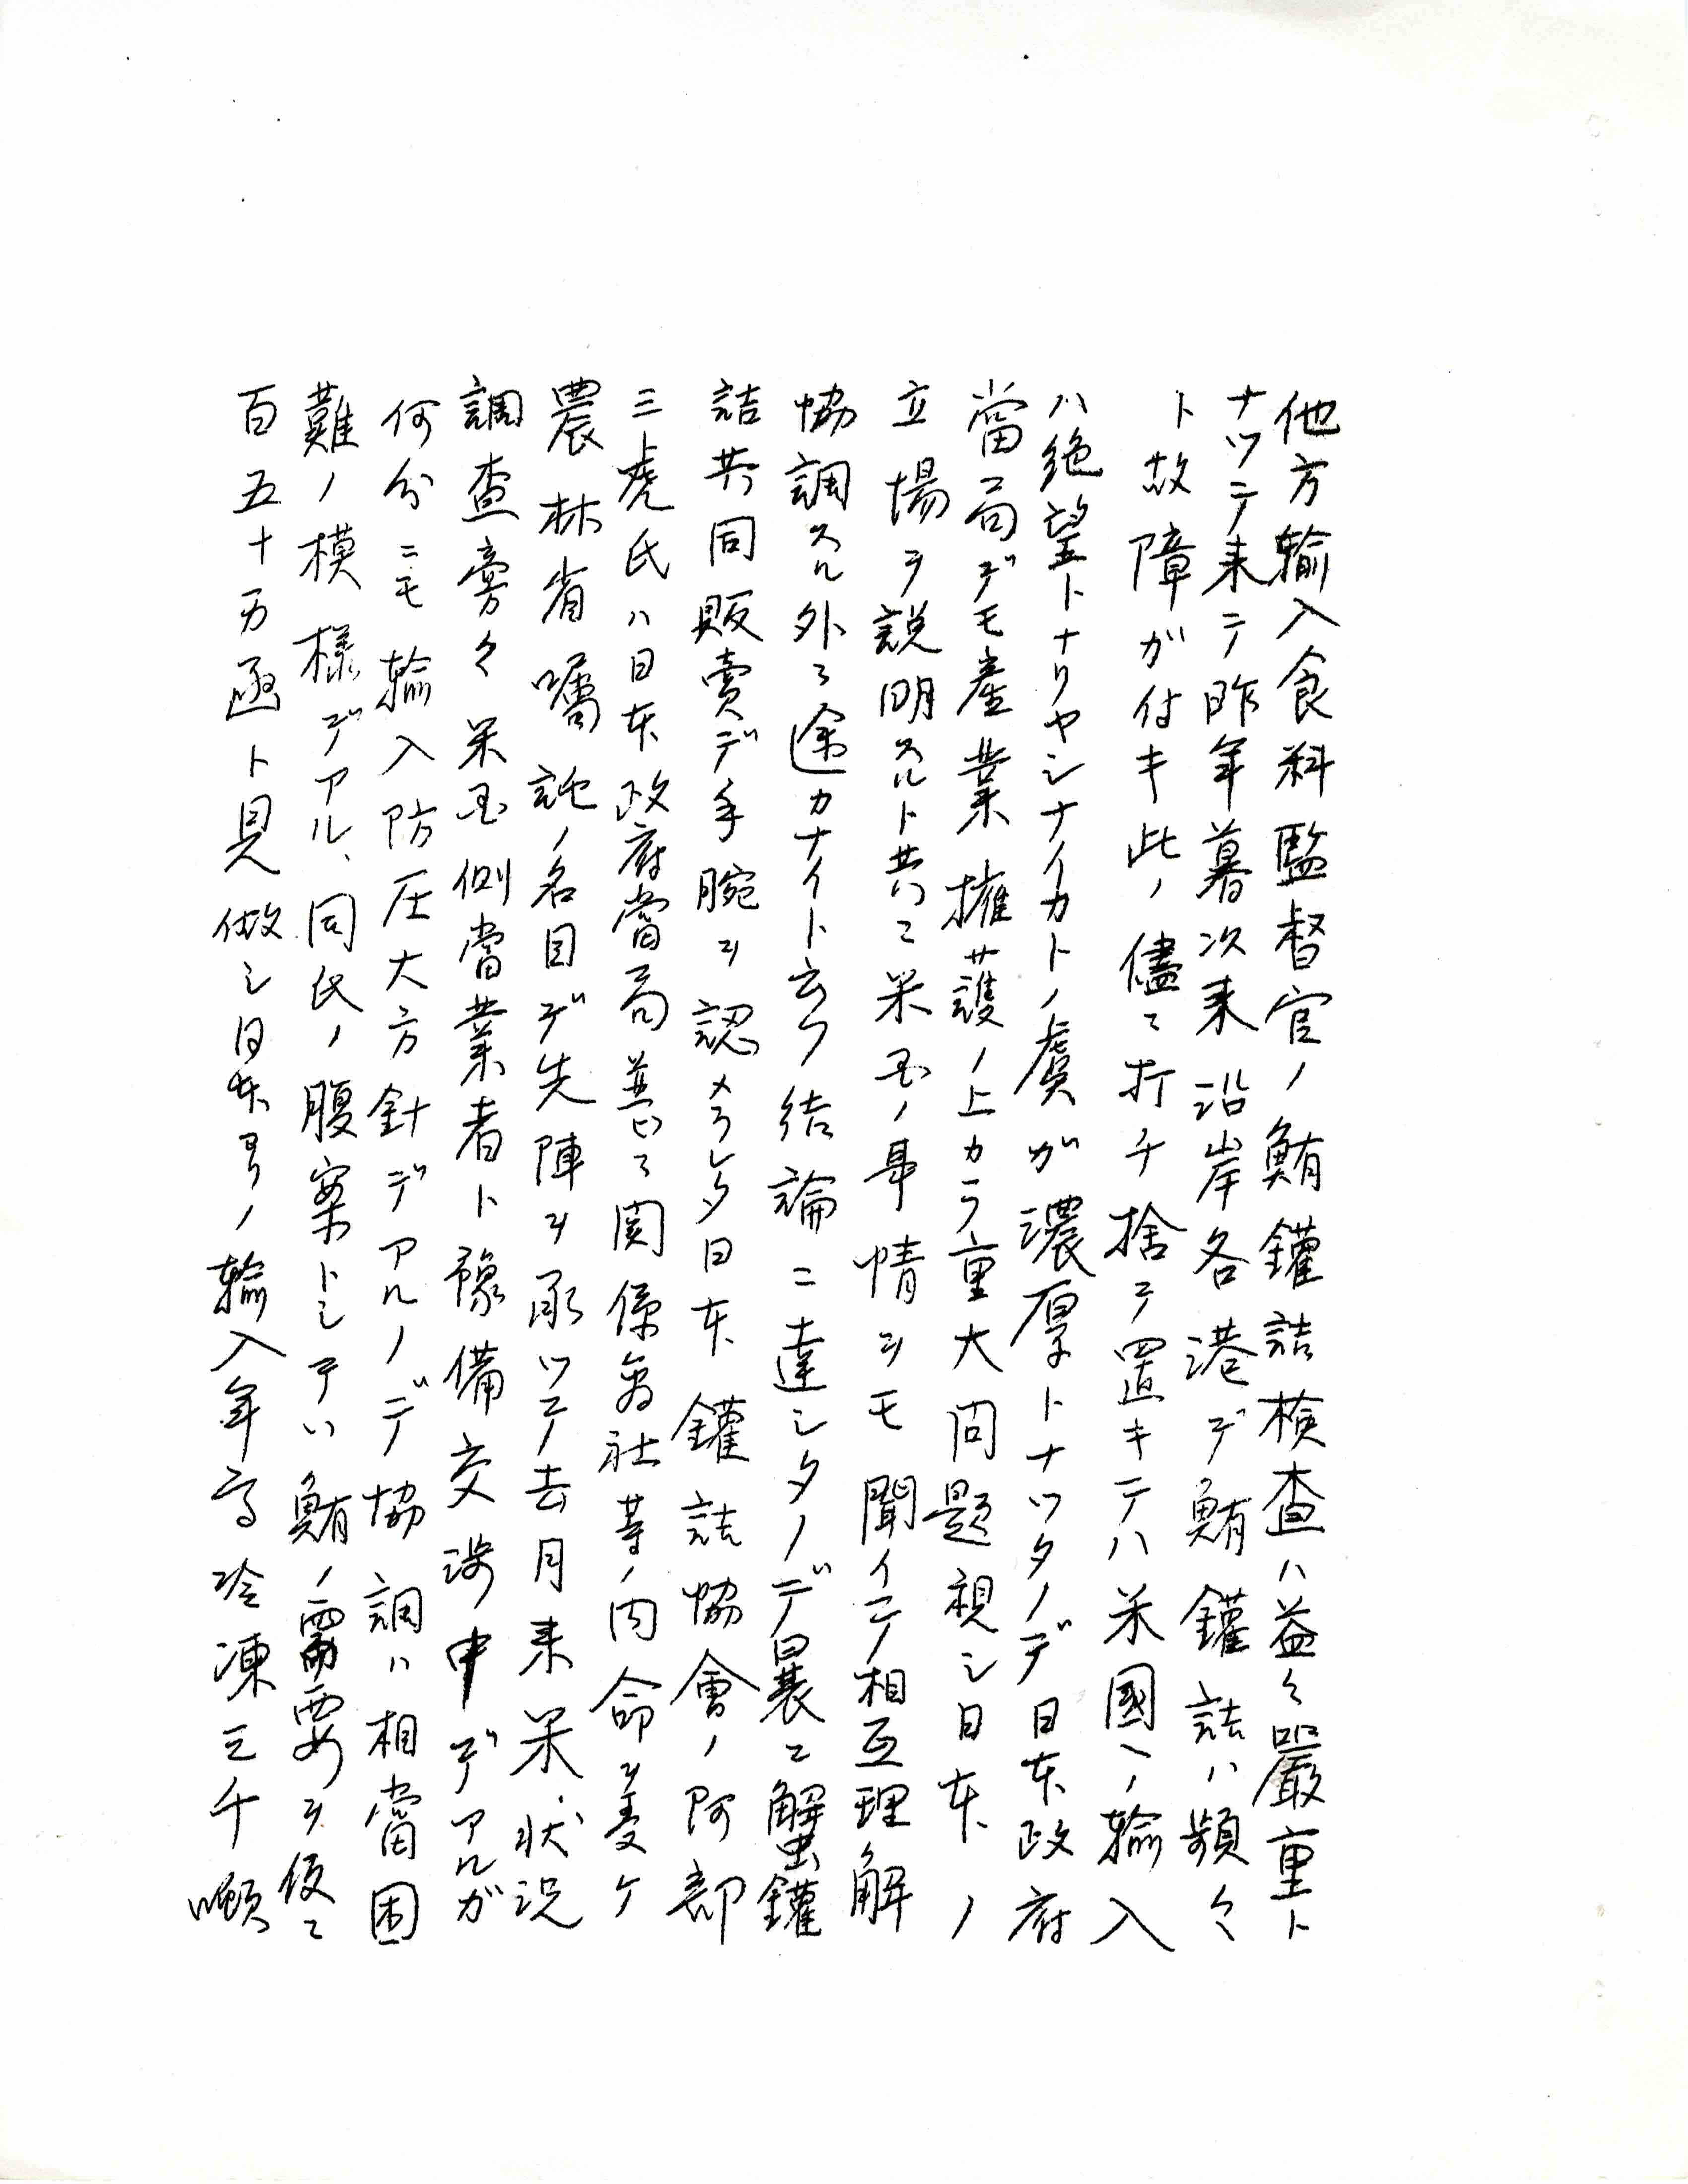 他方輸入食料監督官ノ鮪鑵詰検査ハ益々嚴重ト
ナツテ来テ昨年暮次来沿岸各港デ鮪鑵詰ハ頻々
ト故障ガ付キ此ノ儘ニ打チ捨テ置キテハ米國ヘノ輸入
ハ絶望トナリヤシナイカトノ虞ガ濃厚トナツタノデ日本政府
當局デモ産業擁護ノ上カラ重大问題視シ日本ノ
立場ヲ説明スルト共ニ米国ノ事情ヲモ聞イテ相互理解
協調スル外ニ途カナイト云フ結論ニ達シタノデ曩ニ蟹鑵
詰共同販賣デ手腕ヲ認メラレタ日本鑵詰協會ノ阿部
三虎氏ハ日本政府當局並ビニ関係会社等ノ内命ヲ受ケ
農林省嘱託ノ名目デ先陣ヲ承ツテ去月来米、状況
調査旁々米国側當業者ト豫備交渉中デアルガ
何分ニモ輸入防圧大方針デアルノデ協調ハ相當困
難ノ模様デアル、同氏ノ腹案トシテハ鮪ノ需要ヲ仮ニ
百五十万函ト見做シ日本ヨリノ輸入年高冷凍三千噸